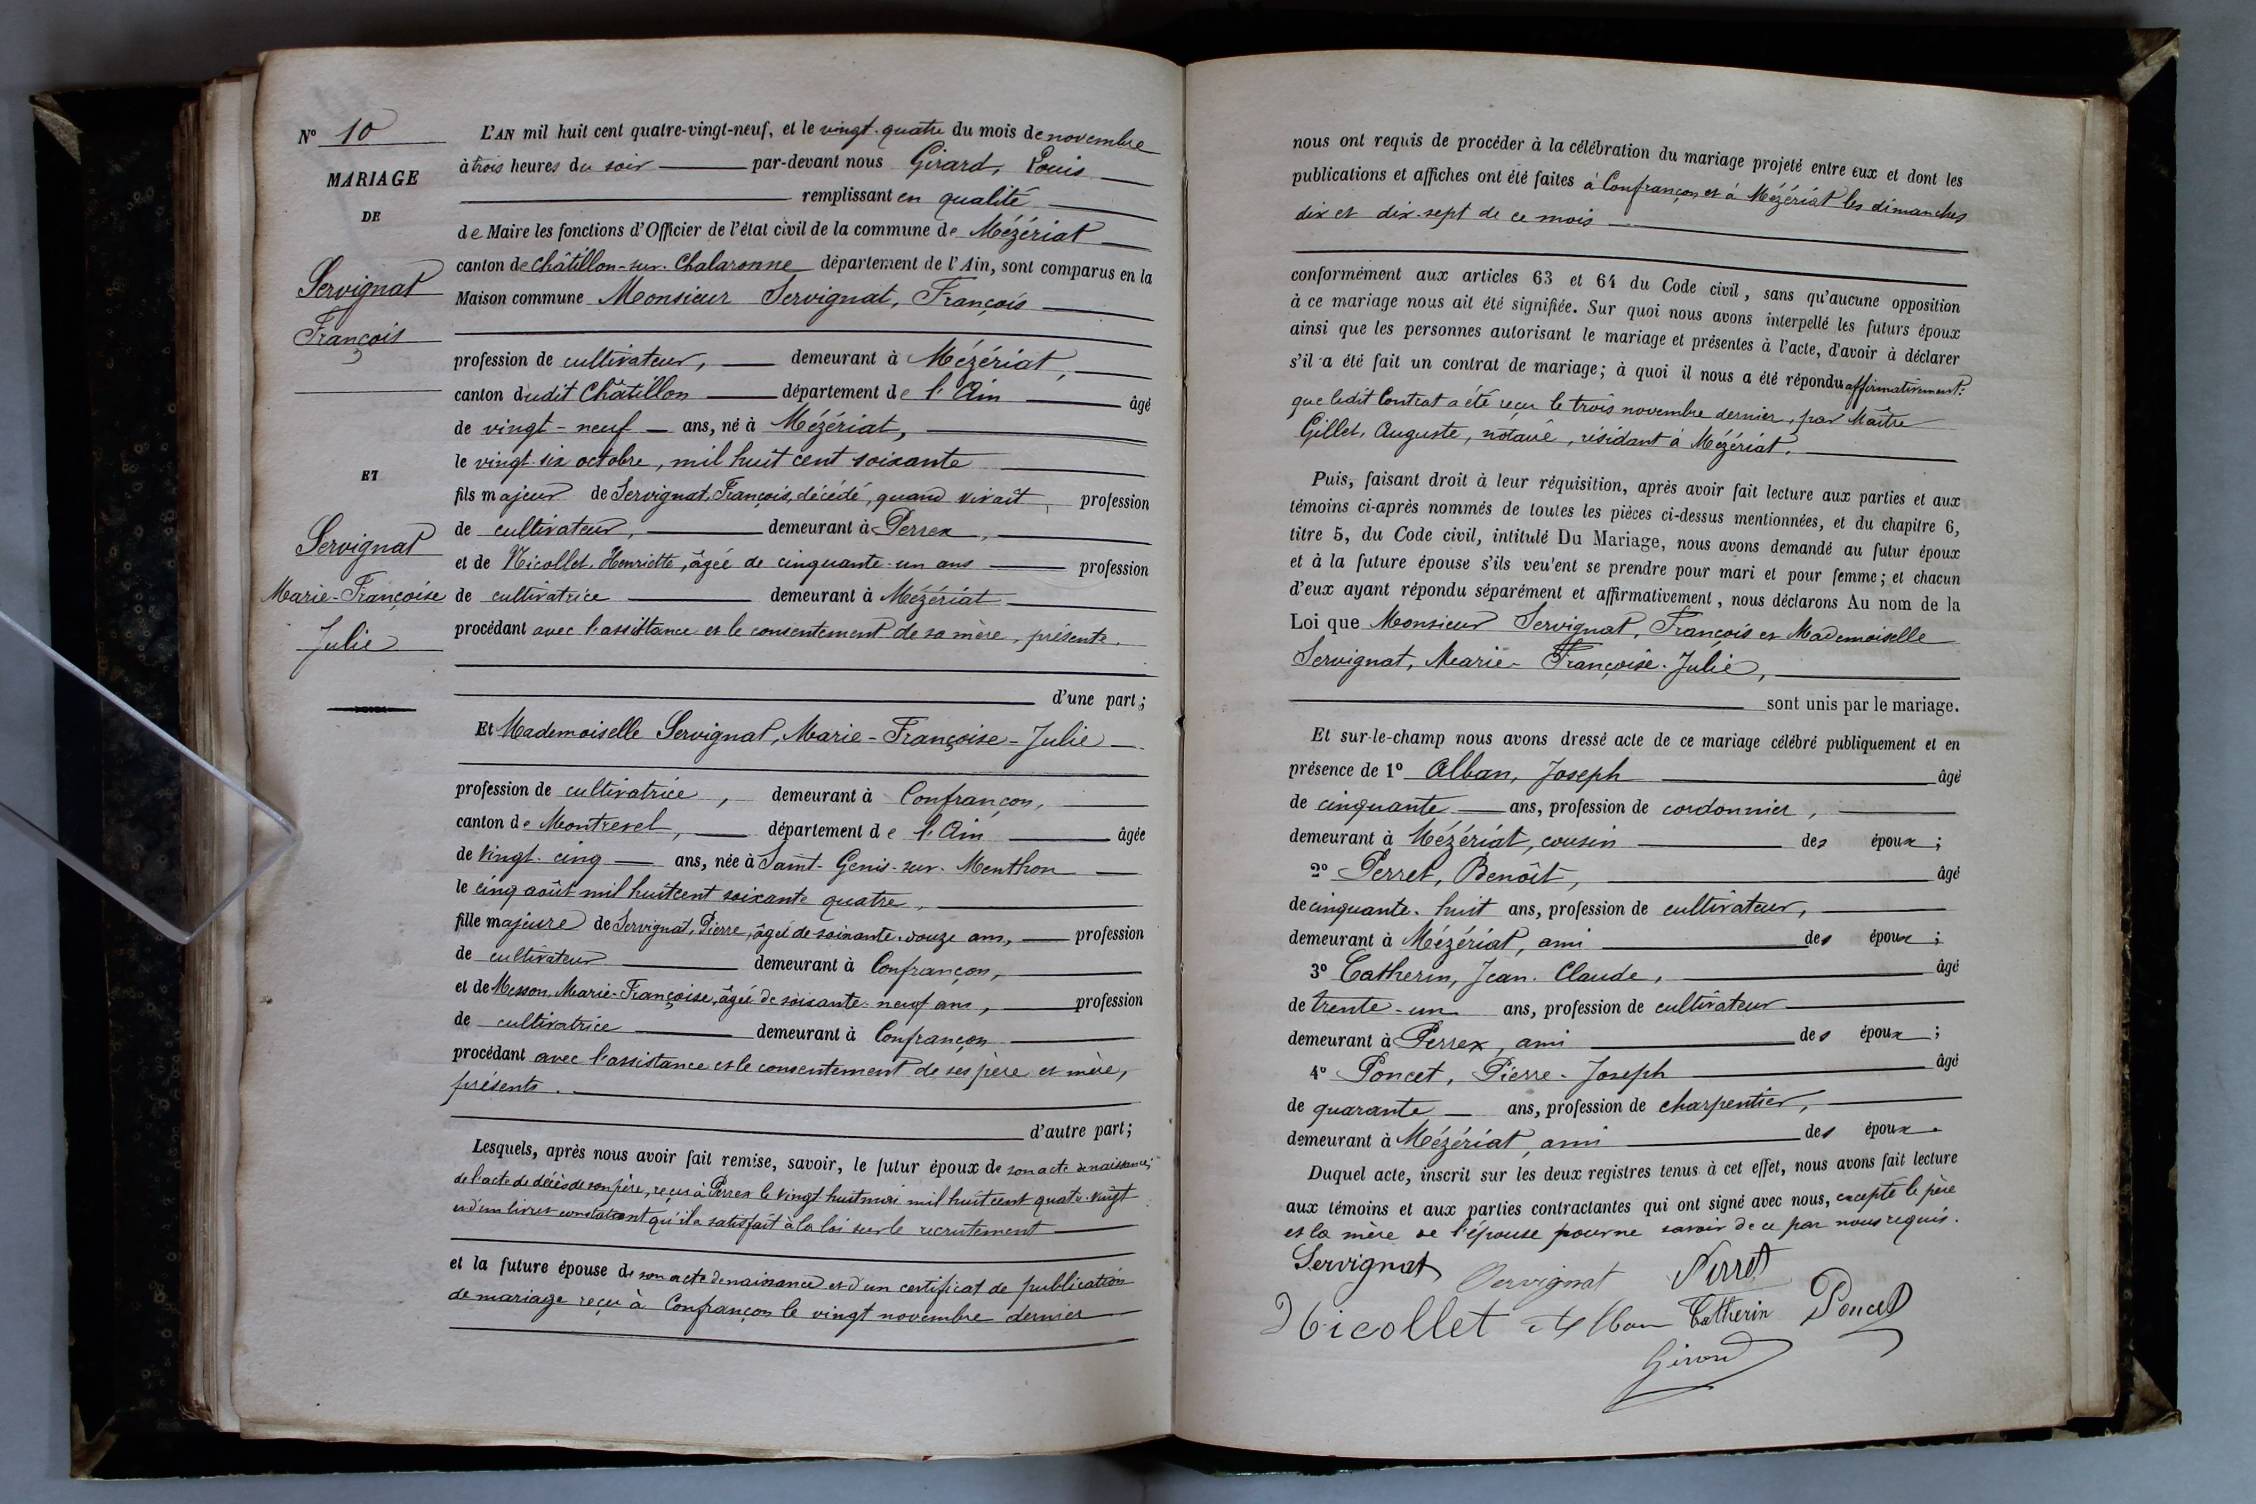 N° 10
MARIAGE
DE
Servignat
François
ET
Servignat
Marie-Françoise
Julie
L'AN mil huit cent quatre-vingt-neuf, et le vingt-quatre du mois de novembre
à trois heures du soir par-devant nous Girard, Louis
remplissant en qualité
de Maire les fonctions d'Officier de l'état civil de la commune de Mézériat
canton de Châtillon-sur-Chalaronne département de l'Ain, sont comparus en la
Maison commune Monsieur Servignat, François
profession de cultivateur, demeurant à Mézériat,
canton dudit Châtillon département de l'Ain âgé
de vingt-neuf ans, né à Mézériat,
le vingt-six octobre, mil huit cent soixante
fils majeur de Servignat, François, décédé, quand vivait, profession
de cultivateur, demeurant à Perrex,
et de Nicollet, Henriette, âgée de cinquante-un ans profession
de cultivatrice demeurant à Mézériat
procédant avec l'assistance et le consentement de sa mère, présente.
d'une part;
Et Mademoiselle Servignat, Marie-Françoise-Julie
profession de cultivatrice, demeurant à Confrançon,
canton de Montrevel, département de l'Ain âgée
de vingt-cinq ans, née à Saint-Genis-sur-Menthon
le cinq août mil huit cent soixante quatre,
fille majeure de Servignat, Pierre, âgé de soixante-douze ans, profession
de cultivateur demeurant à Confrançon,
et de Messon, Marie-Françoise, âgée de soixante-neuf ans, profession
de cultivatrice demeurant à Confrançon
procédant avec l'assistance et le consentement de ses père et mère,
présents.
d'autre part;
Lesquels, après nous avoir fait remise, savoir, le futur époux de son acte de naissance,
de l'acte de décès de son père, reçu à Perrex le vingt huit mai mil huit cent quatre-vingt
et d'un livret constatant qu'il a satisfait à la loi sur le recrutement
et la future épouse de son acte de naissance et d'un certificat de publication
de mariage reçu à Confrançon le vingt novembre dernier
nous ont requis de procéder à la célébration du mariage projeté entre eux et dont les
publications et affiches ont été faites à Confrançon et à Mézériat les dimanches
dix et dix-sept de ce mois
conformément aux articles 63 et 64 du Code civil, sans qu'aucune opposition
à ce mariage nous ait été signifiée. Sur quoi nous avons interpellé les futurs époux
ainsi que les personnes autorisant le mariage et présentes à l'acte, d'avoir à déclarer
s'il a été fait un contrat de mariage; à quoi il nous a été répondu affirmativement:
que ledit Contrat a été reçu le trois novembre dernier, par Maître
Gillet, Auguste, notaire, résidant à Mézériat.
Puis, faisant droit à leur réquisition, après avoir fait lecture aux parties et aux
témoins ci-après nommés de toutes les pièces ci-dessus mentionnées, et du chapitre 6,
titre 5, du Code civil, intitulé Du Mariage, nous avons demandé au futur époux
et à la future épouse s'ils veu'ent se prendre pour mari et pour femme; et chacun
d'eux ayant répondu séparément et affirmativement, nous déclarons Au nom de la
Loi que Monsieur Servignat, François et Mademoiselle
Servignat, Marie-Françoise-Julie,
sont unis par le mariage.
Et sur-le-champ nous avons dressé acte de ce mariage célébré publiquement et en
présence de 1° Alban, Joseph âgé
de cinquante ans, profession de cordonnier,
demeurant à Mézériat, cousin des époux;
2° Perret, Benoît, âgé
de cinquante-huit ans, profession de cultivateur,
demeurant à Mézériat, ami des époux;
3° Catherin, Jean-Claude, âgé
de trente-un ans, profession de cultivateur
demeurant à Perrex, ami des époux;
4° Poncet, Pierre-Joseph âgé
de quarante ans, profession de charpentier,
demeurant à Mézériat, ami des époux.
Duquel acte, inscrit sur les deux registres tenus à cet effet, nous avons fait lecture
aux témoins et aux parties contractantes qui ont signé avec nous, excepté le père
et la mère de l'épouse pour ne savoir de ce par nous requis.
Servignat Servignat Perret
Nicollet Alban Catherin Poncet
Girard